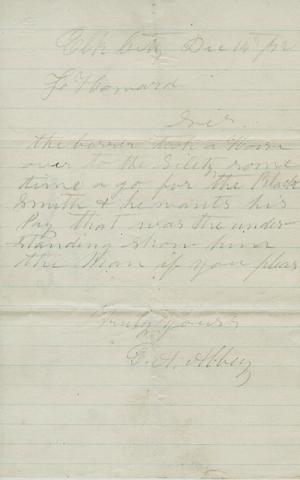 Elk City Dec 14
F. Howard
Sir
the barrer took a Horse
over to the Siletz some
time a go for the Black
Smith & he wants his
Pay that was the under
standing show him
the Man if you pleas
Truly yours
E. A. Abbey